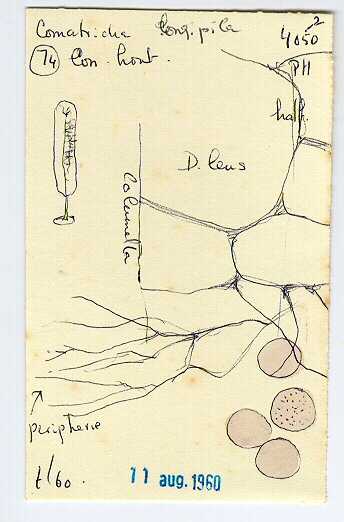 Comatricha longipila 4050²
74 Con. hont.
PH
half.
D. lens
Columella
peripherie
t/60.
11 aug. 1960